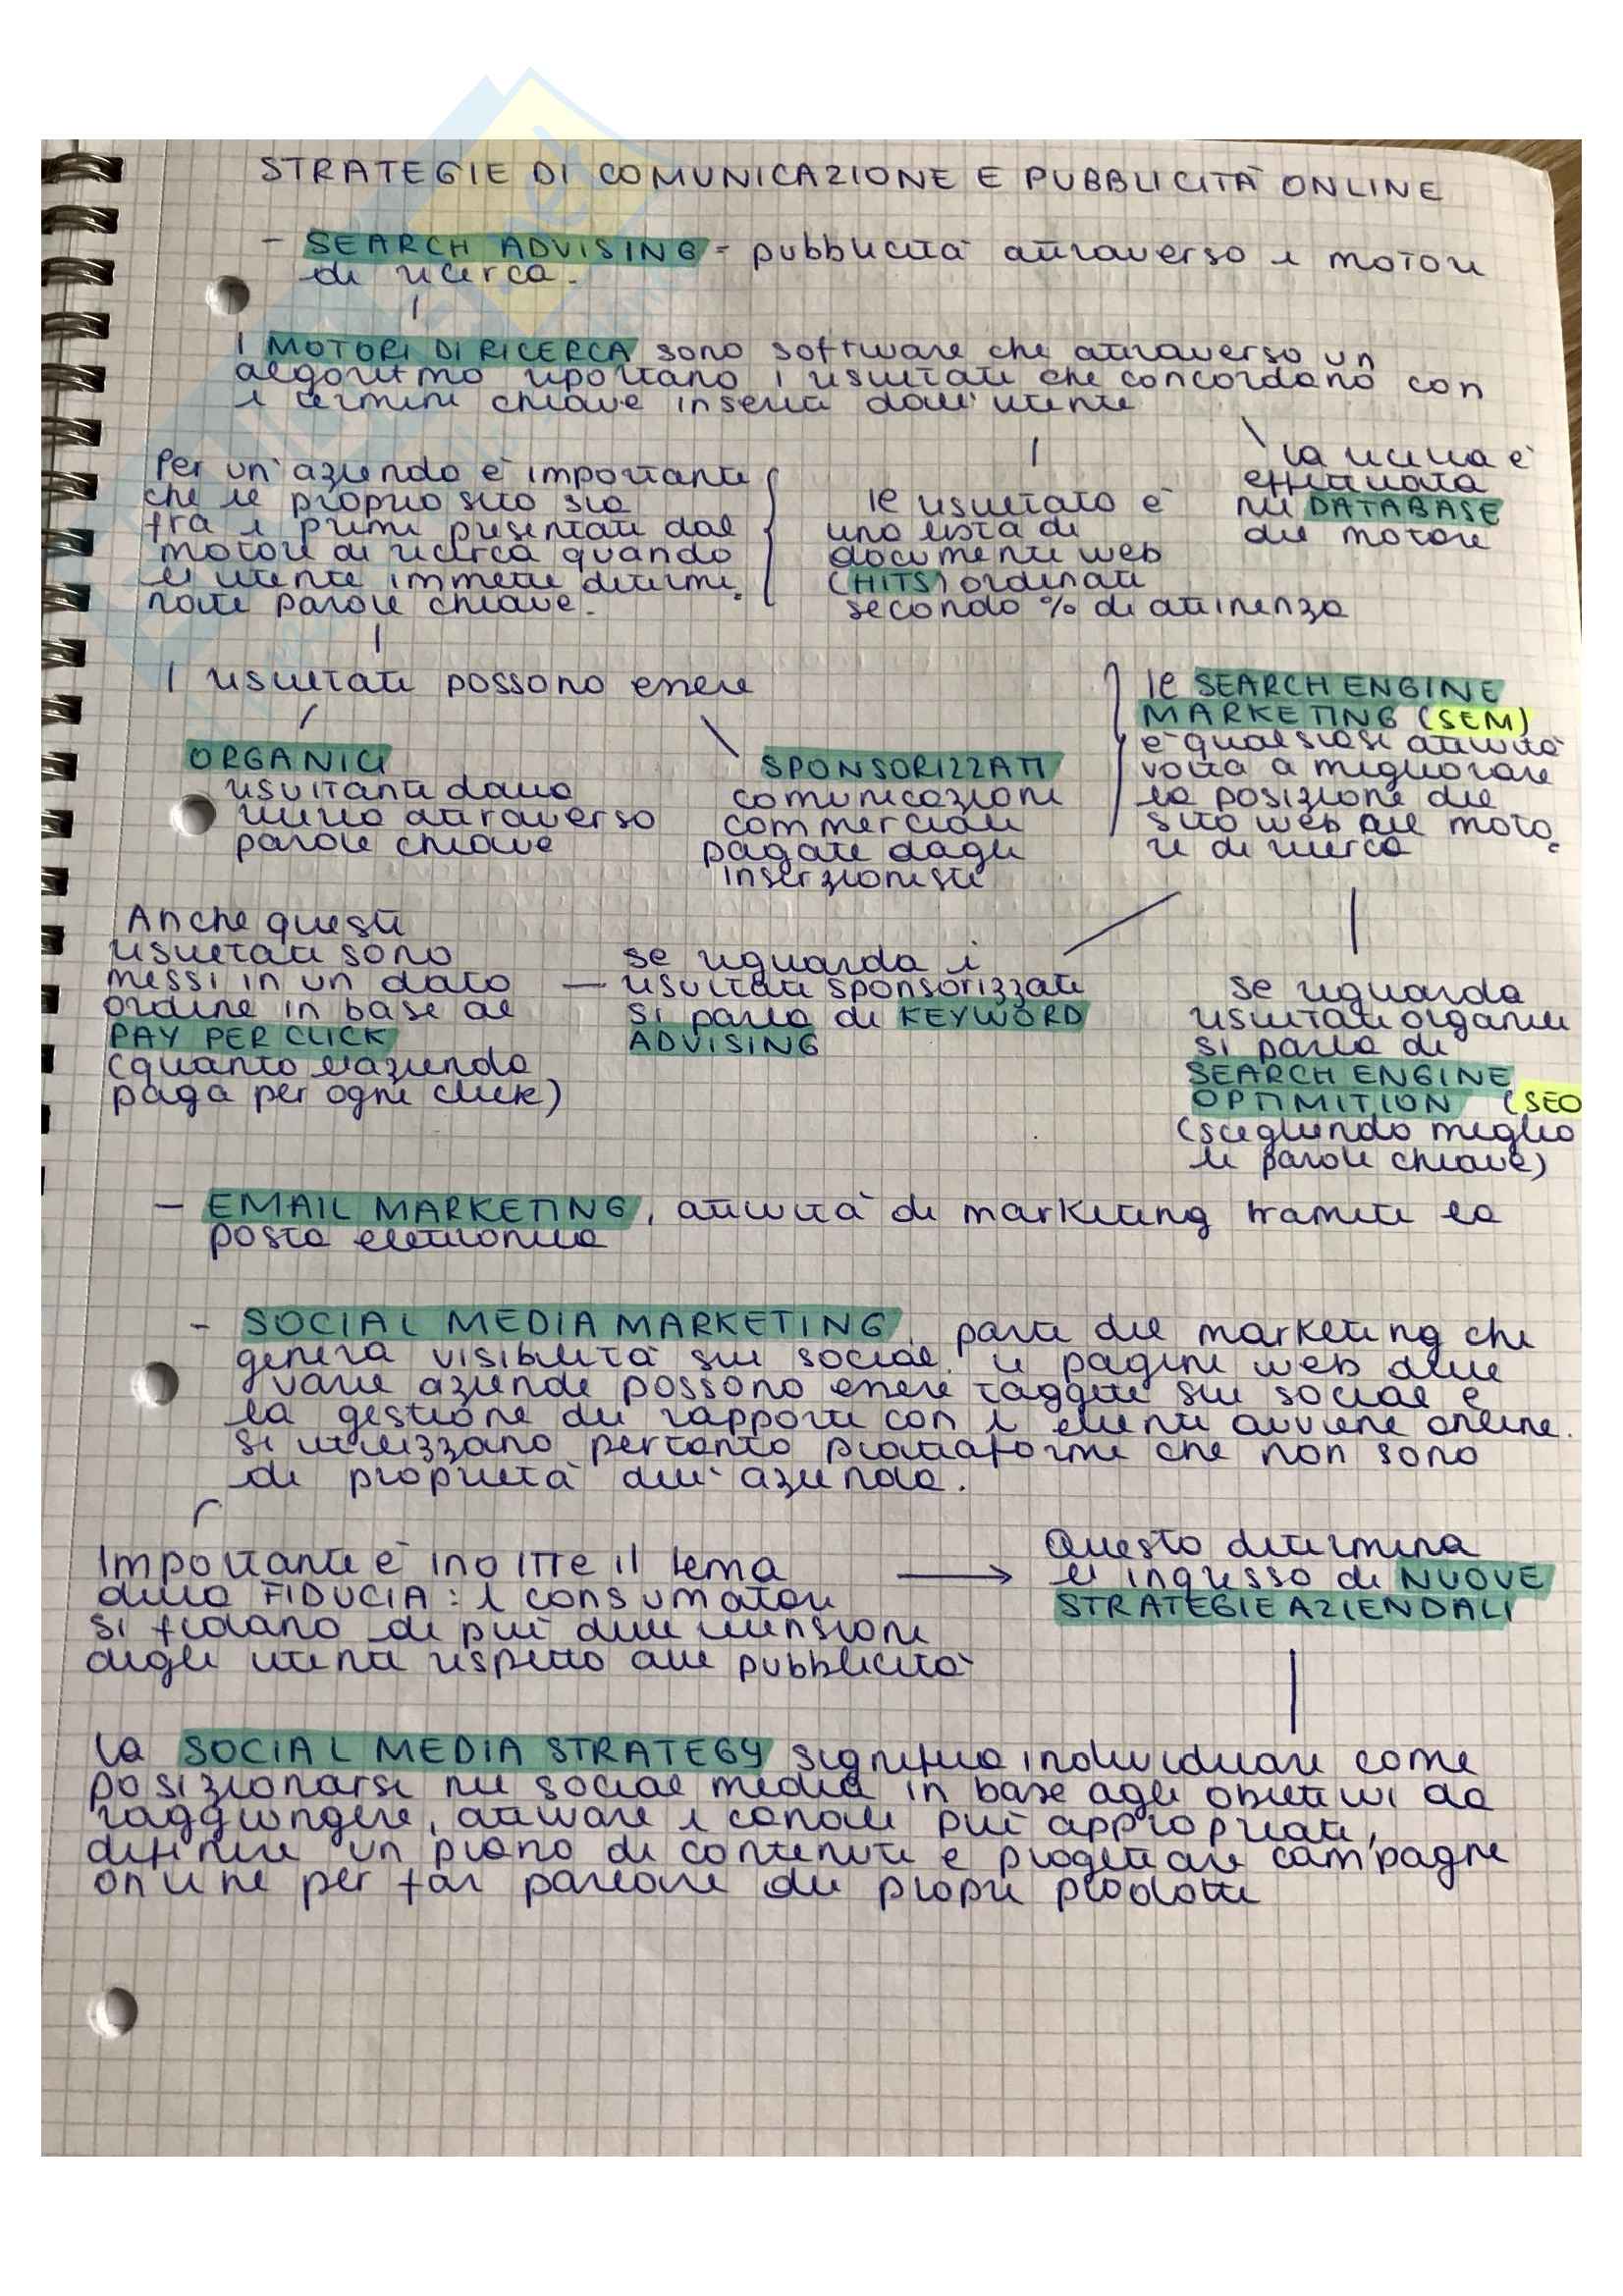 STRATEGIE DI COMUNICAZIONE E PUBBLICITÀ ONLINE
- SEARCH ADVISING = pubblicità attraverso i motori
di ricerca.
I MOTORI DI RICERCA sono software che attraverso un
algoritmo riportano i risultati che concordano con
i termini chiave inseriti dall'utente
Per un'azienda è importante
che il proprio sito sia
fra i primi presentati dal
motore di ricerca quando
l'utente immette determi.
nate parole chiave.
Il risultato è
una lista di
documenti web
(HITS) ordinati
secondo % di attinenza
La ricerca è
effettuata
nel DATABASE
del motore
I risultati possono essere
ORGANICI
risultanti dalla
ricerca attraverso
parole chiave
SPONSORIZZATI
comunicazioni
commerciali
pagate dagli
inserzionisti
Il SEARCH ENGINE
MARKETING (SEM)
è qualsiasi attività
volta a migliorare
la posizione del
sito web nel moto.
re di ricerca
Anche questi
risultati sono
messi in un dato
ordine in base al
PAY PER CLICK
(quanto l'azienda
paga per ogni click)
se riguarda i
— risultati sponsorizzati
si parla di KEYWORD
ADVISING
se riguarda
risultati organici
si parla di
SEARCH ENGINE
OPTIMITION (SEO
(scegliendo meglio
le parole chiave)
- EMAIL MARKETING, attività di marketing tramite la
posta elettronica
- SOCIAL MEDIA MARKETING, parte del marketing che
genera visibilità sui social. Le pagine web delle
varie aziende possono essere taggate sui social e
la gestione dei rapporti con i clienti avviene online.
Si utilizzano pertanto piattaforme che non sono
di proprietà dell'azienda.
Importante è inoltre il tema
della FIDUCIA: i consumatori
si fidano di più delle recensioni
degli utenti rispetto alle pubblicità
→ Questo determina
l'ingresso di NUOVE
STRATEGIE AZIENDALI
La SOCIAL MEDIA STRATEGY significa individuare come
posizionarsi nei social media in base agli obiettivi da
raggiungere, attivare i canali più appropriati,
definire un piano di contenuti e progettare campagne
online per far parlare dei propri prodotti